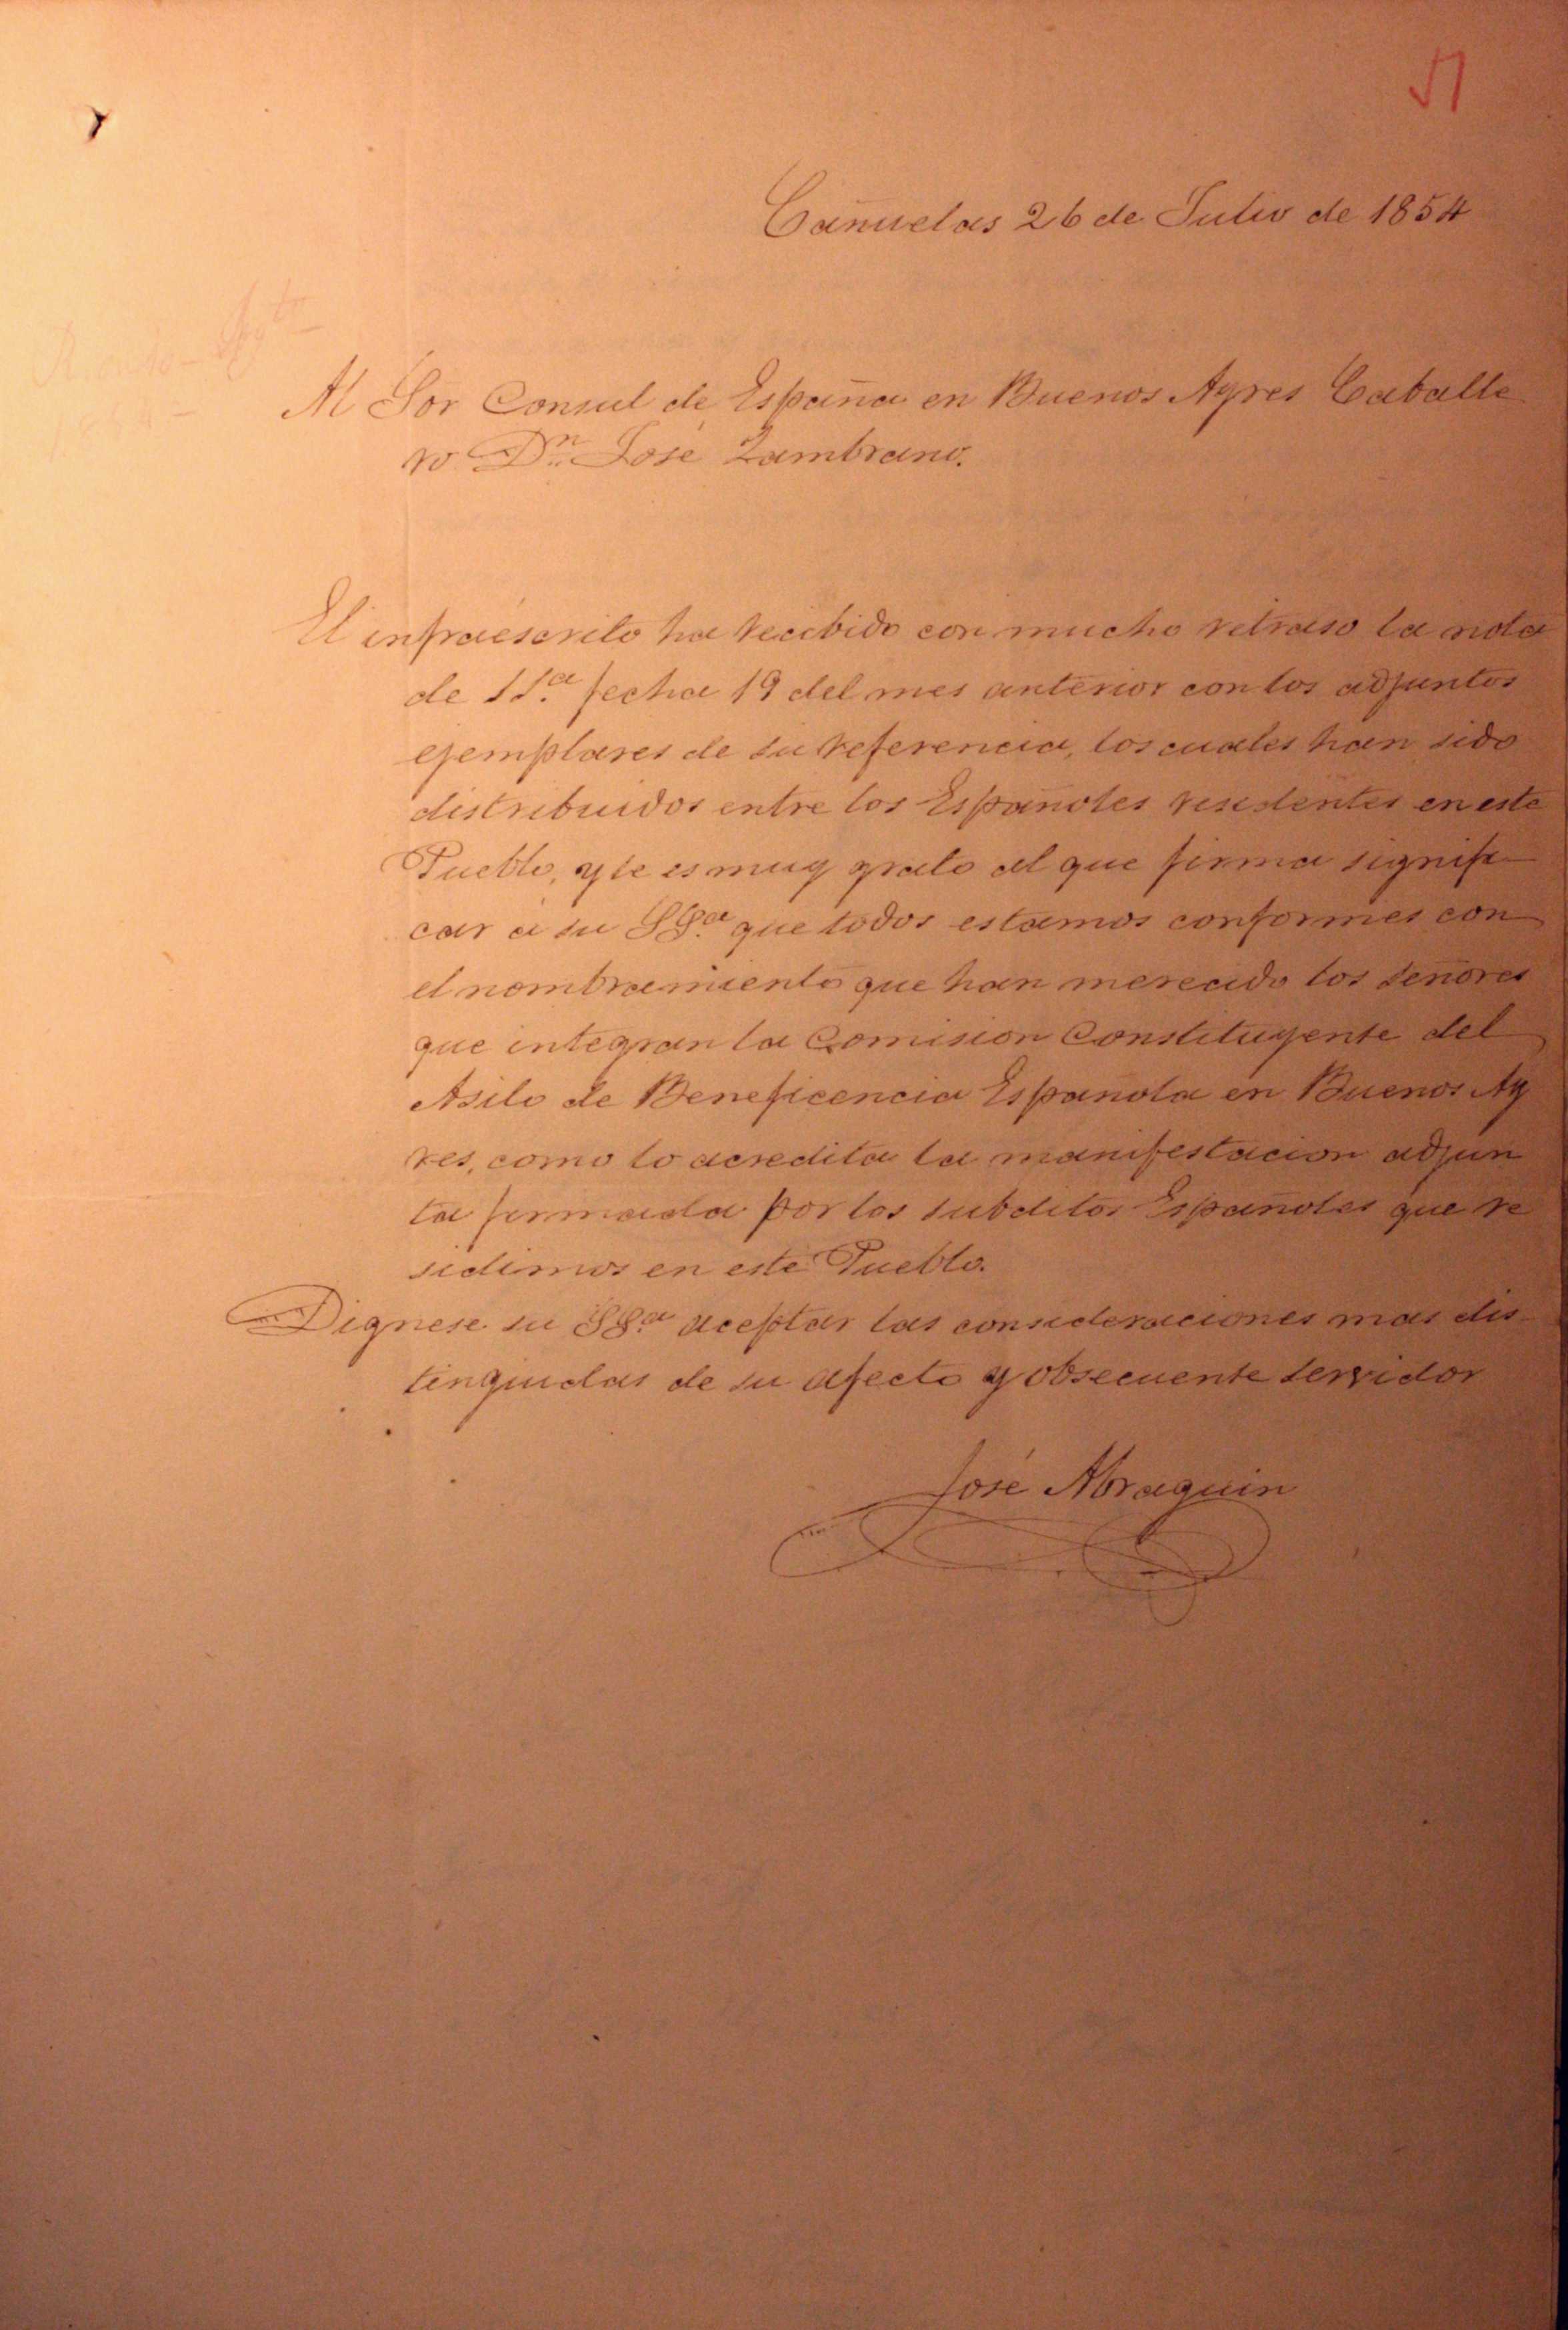 51
Cañuelas 26 de Julio de 1854
Al Sor Consul de España en Buenos Ayres Caballe
ro Dn José Zambrano.
El infraéscrito ha recibido con mucho retraso la nota
de SSa. fecha 19 del mes anterior con los adjuntos
ejemplares de su referencia, los cuales han sido
distribuidos entre los Españoles residentes en este
Pueblo, y le es muy grato al que firma signifi-
car á su SSa. que todos estamos conformes con
el nombramiento que han merecido los señores
que integran la Comision Constituyente del
Asilo de Beneficencia Española en Buenos Ay
res, como lo acredita la manifestacion adjun
ta firmada por los subditos Españoles que re
sidimos en este Pueblo.
Dignese su SSa. aceptar las consideraciones mas dis-
tinguidas de su afecto y obsecuente servidor
José